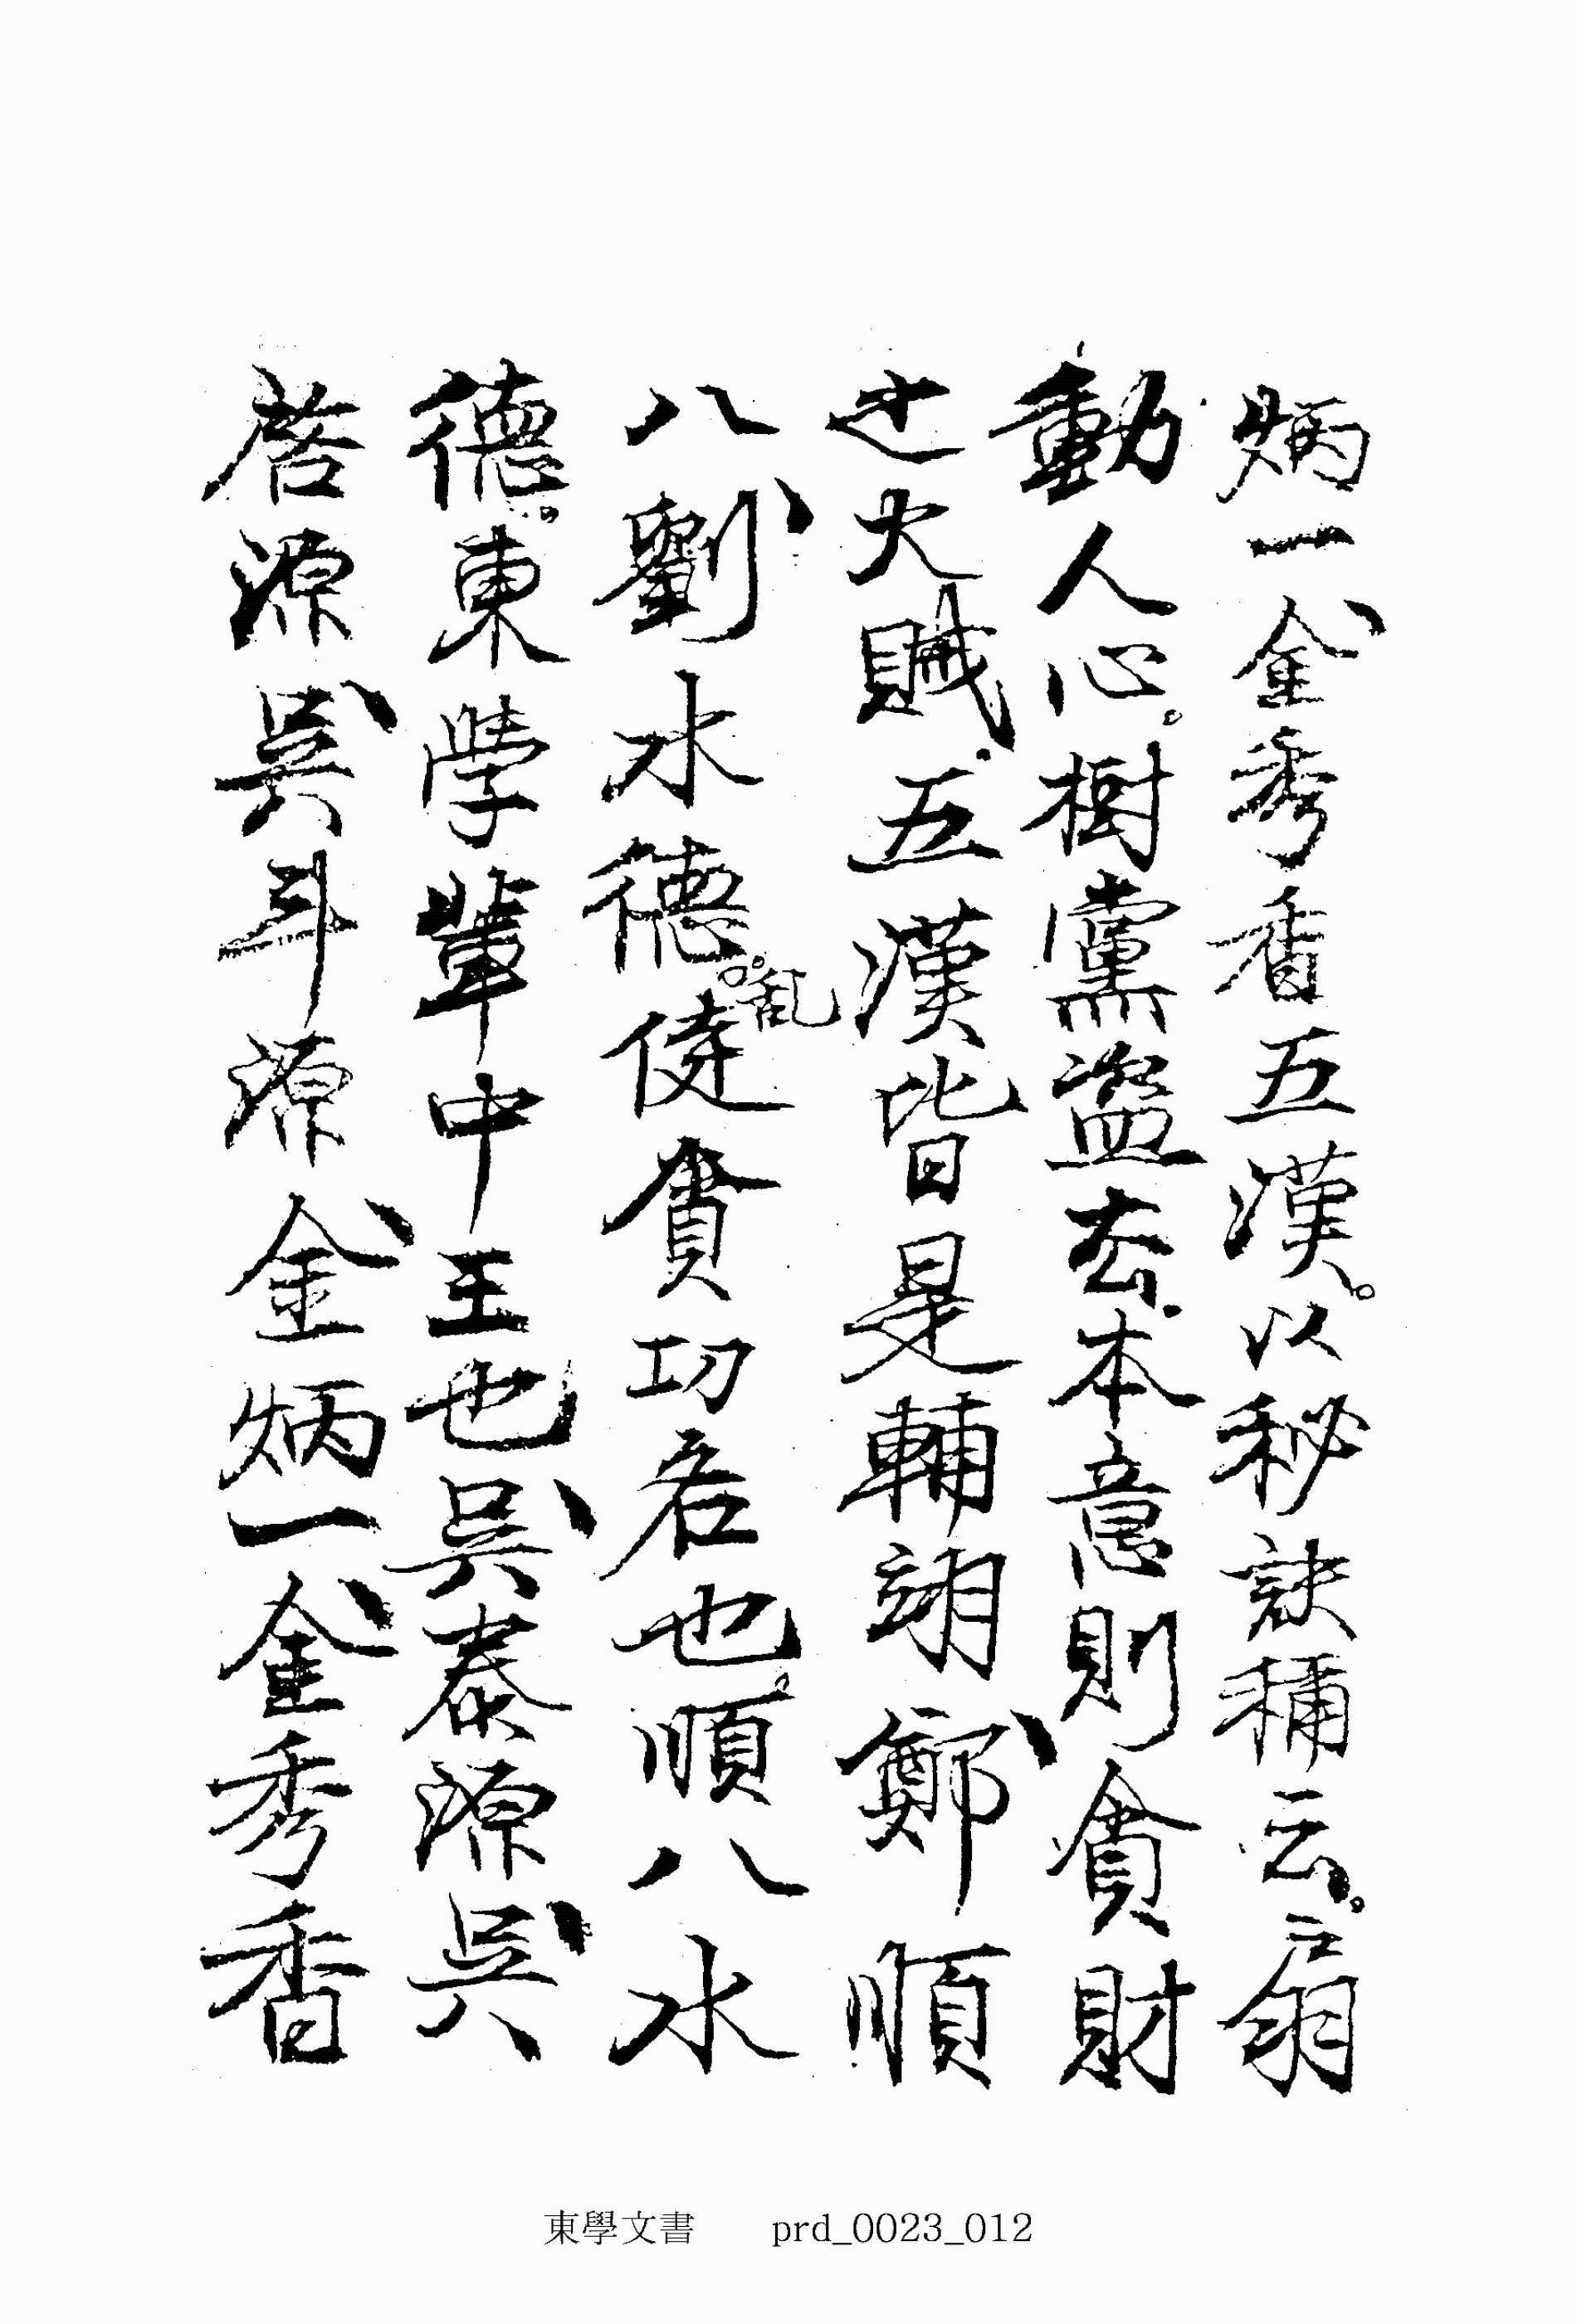 炳一金秀香五漢。以秘訣稱云。扇
動人心。樹黨盜去。本意則貪財
大賊。五漢皆是輔翊鄭順
八劉水德。乱徒貪功名也。順八水
德。東学輩中王也吳泰源吳
源吳斗源金炳一金秀香
東學文書 prd_0023_012